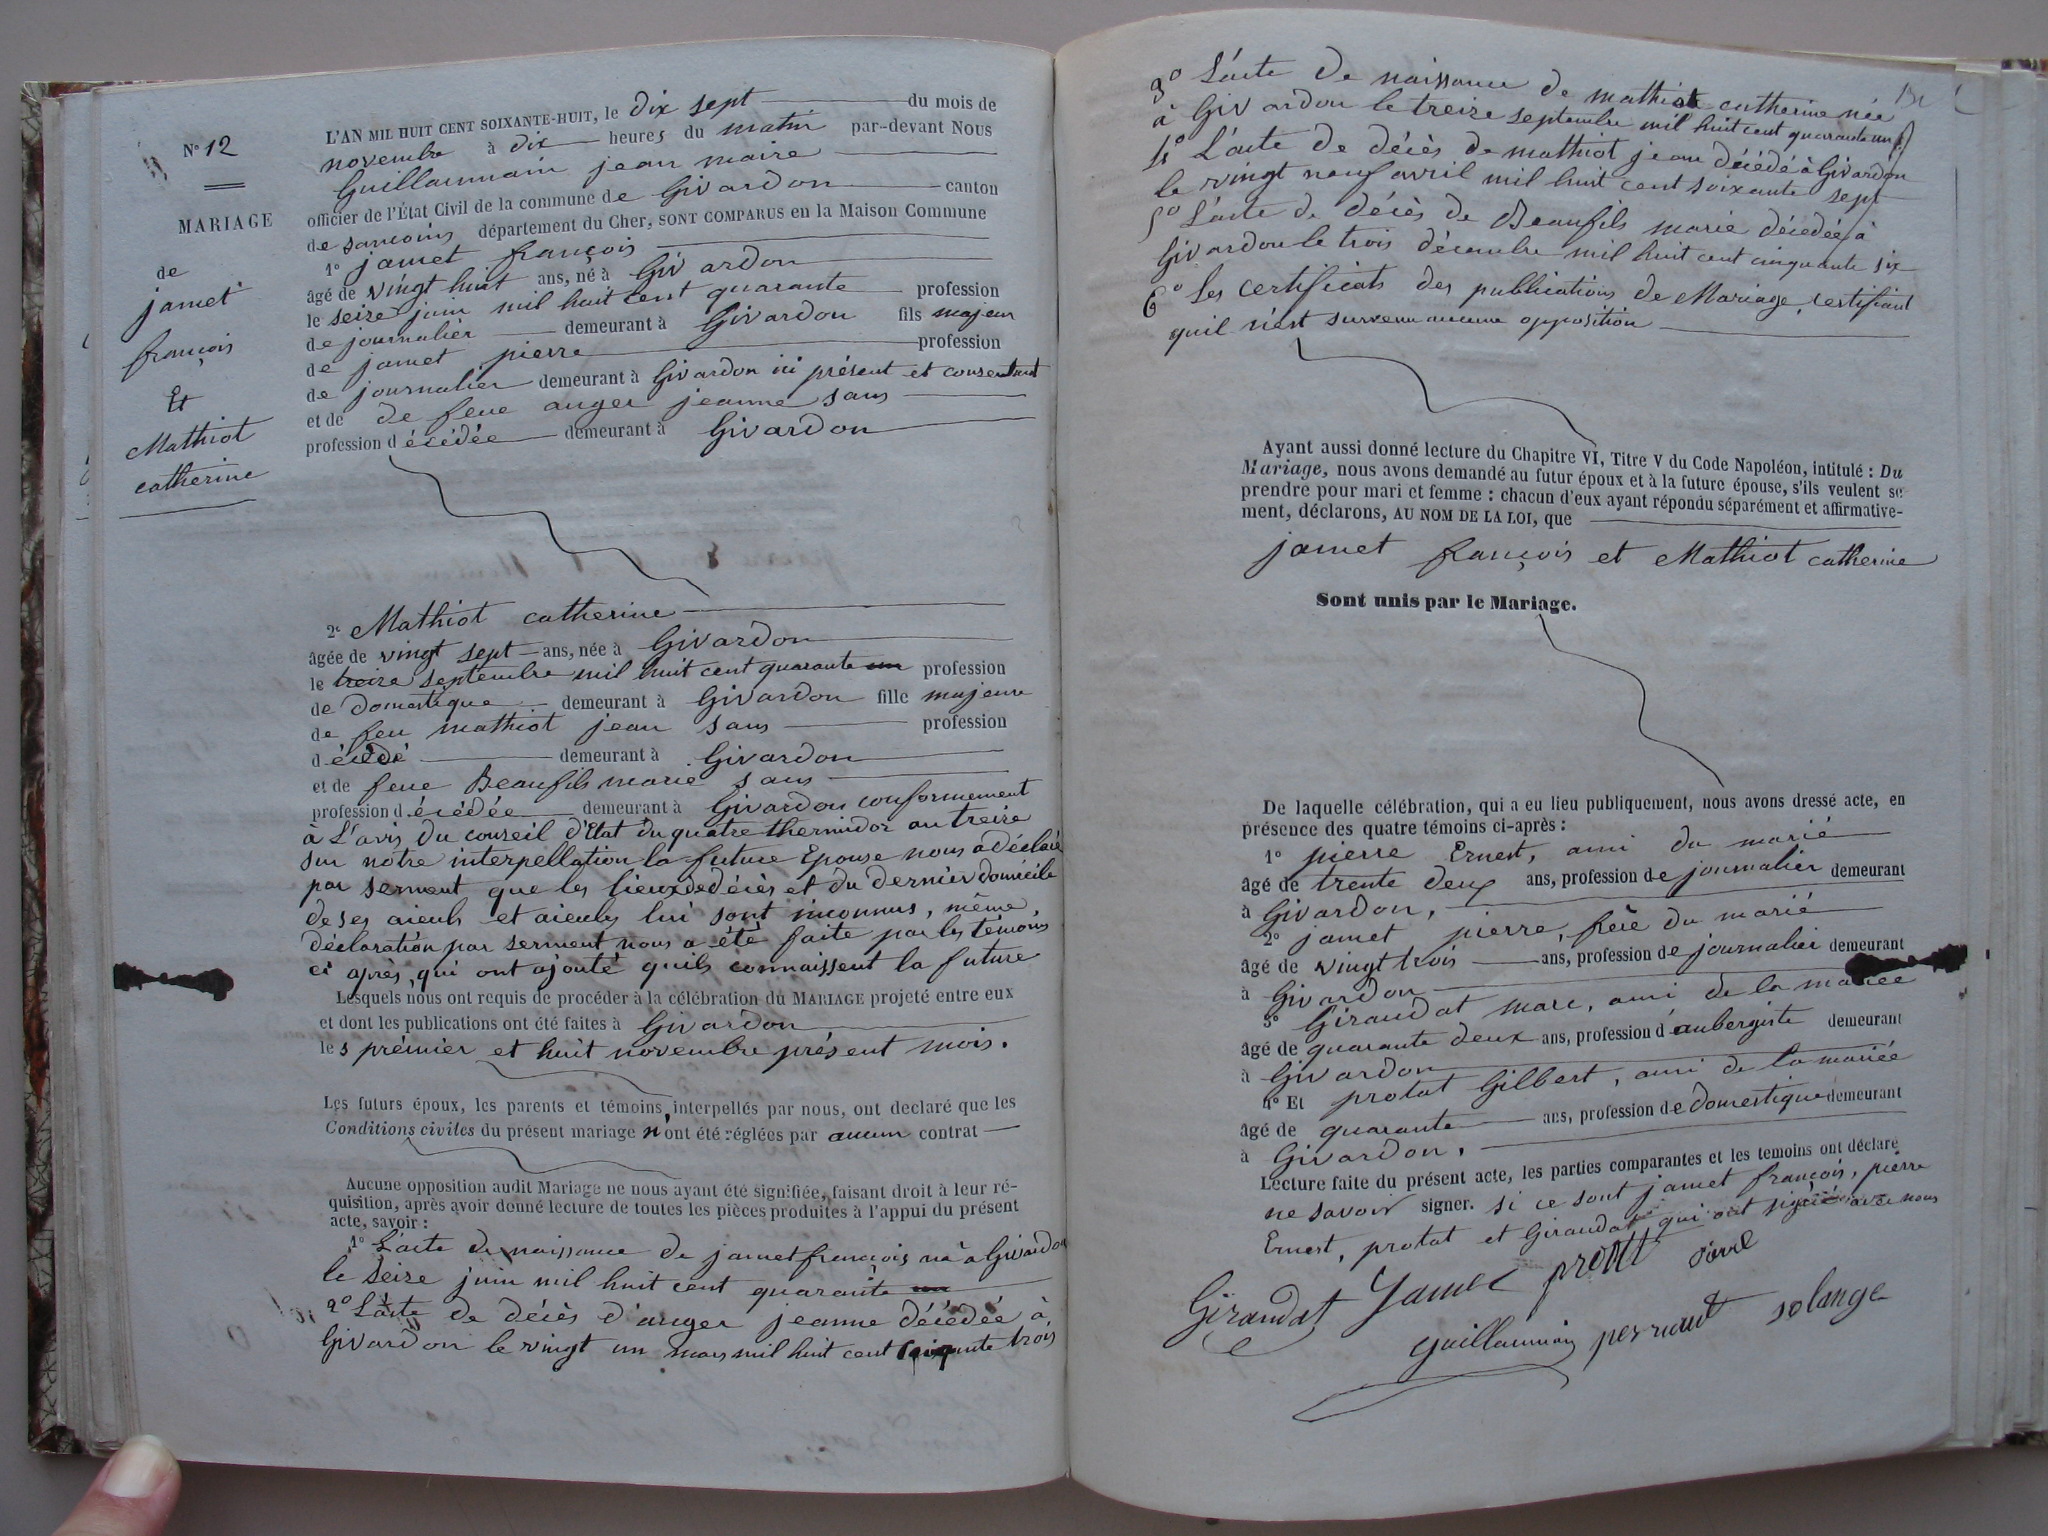 N° 12
MARIAGE
de
jamet
françois
Et
Mathiot
catherine
L'AN MIL HUIT CENT SOIXANTE-HUIT, le dix sept du mois de
novembre à dix heures du matin par-devant Nous
Guillaumain jean maire
officier de l'État Civil de la commune de Givardon canton
de sancoins département du Cher, SONT COMPARUS en la Maison Commune
1° jamet françois
âgé de vingt huit ans, né à Givardon
le seize juin mil huit cent quarante profession
de journalier demeurant à Givardon fils majeur
de jamet pierre profession
de journalier demeurant à Givardon ici présent et consentant
et de de feue auger jeanne sans
profession décédée demeurant à Givardon
2° Mathiot catherine
âgée de vingt sept ans, née à Givardon
le treize septembre mil huit cent quarante un profession
de domestique demeurant à Givardon fille majeure
de feu mathiot jean sans profession
décédé demeurant à Givardon
et de feue Beaufils marie sans
profession décédée demeurant à Givardon conformement
à L'avis du conseil d'Etat du quatre thermidor an treize
sur notre interpellation la future Epouse nous a déclaré
par serment que les lieux de décès et du dernier domicile
de ses aieuls et aieules lui sont inconnus, même
déclaration par serment nous a été faite par les témoins
ci après, qui ont ajouté quils connaissent la future
Lesquels nous ont requis de procéder à la célébration du MARIAGE projeté entre eux
et dont les publications ont été faites à Givardon
les prémier et huit novembre présent mois.
Les futurs époux, les parents et témoins, interpellés par nous, ont declaré que les
Conditions civiles du présent mariage n'ont été réglées par aucun contrat
Aucune opposition audit Mariage ne nous ayant été signifiée, faisant droit à leur ré-
quisition, après avoir donné lecture de toutes les pièces produites à l'appui du présent
acte, savoir :
1° L'acte de naissance de jamet françois né à Givardon
le seize juin mil huit cent quarante
2° L'acte de décès d'auger jeanne décédée à
Givardon le vingt un mars mil huit cent cinquante trois
3° L'acte de naissance de mathiot catherine née
à Givardon le treize septembre mil huit cent quarante un
4° L'acte de décès de mathiot jean décédé à Givardon
le vingt neuf avril mil huit cent soixante sept
5° L'acte de décès de Beaufils marie décédée à
Givardon le trois décembre mil huit cent cinquante six
6° Les certificats des publications de Mariage, certifiant
quil n'est survenu aucune opposition
Ayant aussi donné lecture du Chapitre VI, Titre V du Code Napoléon, intitulé : Du
Mariage, nous avons demandé au futur époux et à la future épouse, s'ils veulent se
prendre pour mari et femme : chacun d'eux ayant répondu séparément et affirmative-
ment, déclarons, AU NOM DE LA LOI, que
jamet françois et Mathiot catherine
Sont unis par le Mariage.
De laquelle célébration, qui a eu lieu publiquement, nous avons dressé acte, en
présence des quatre témoins ci-après :
1° pierre Ernest, ami du marié
âgé de trente deux ans, profession de journalier demeurant
à Givardon,
2° jamet pierre, frère du marié
âgé de vingt trois ans, profession de journalier demeurant
à Givardon
3° Giraudat marc, ami de la mariée
âgé de quarante deux ans, profession d'aubergiste demeurant
à Givardon
4° Et protat Gilbert, ami de la mariée
âgé de quarante ans, profession de domestique demeurant
à Givardon.
Lecture faite du présent acte, les parties comparantes et les temoins ont déclaré
ne savoir signer. si ce sont jamet françois, pierre
Ernest, protat et Giraudat qui ont signé avec nous
Giraudat Jamet protit
guillaumin perraut solange